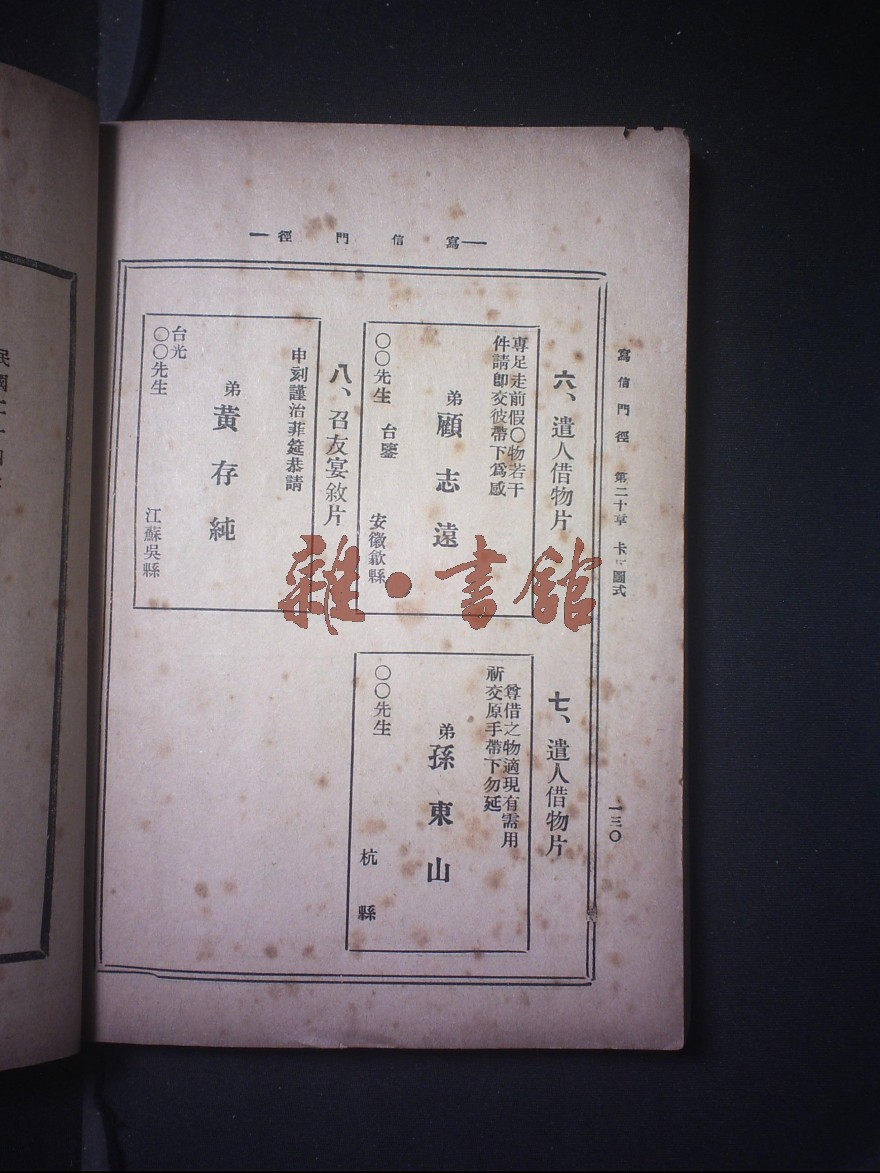 寫信門徑
寫信門徑 第二十章 卡片圖式
一三〇
六、遣人借物片
專足走前假〇物若干
件請卽交彼帶下爲感
弟 顧志遠
〇〇先生 台鑒
安徽歙縣
七、遣人借物片
尊借之物適現有需用
祈交原手帶下勿延
弟 孫東山
〇〇先生
杭縣
八、召友宴敘片
申刻謹治菲筵恭請
弟 黃存純
台光
〇〇先生
江蘇吳縣
雜·書館